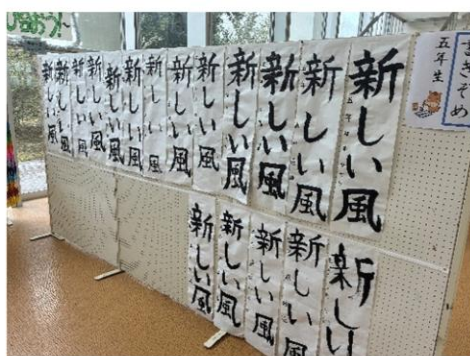 きぞめ
五年生
新しい風
新しい風
新しい風
新しい風
新しい風
新しい風
新しい風
新しい風
新しい風
新しい風
新しい風
新しい風
新しい風
新しい
新しい風
新しい風
新しい風
新しい風